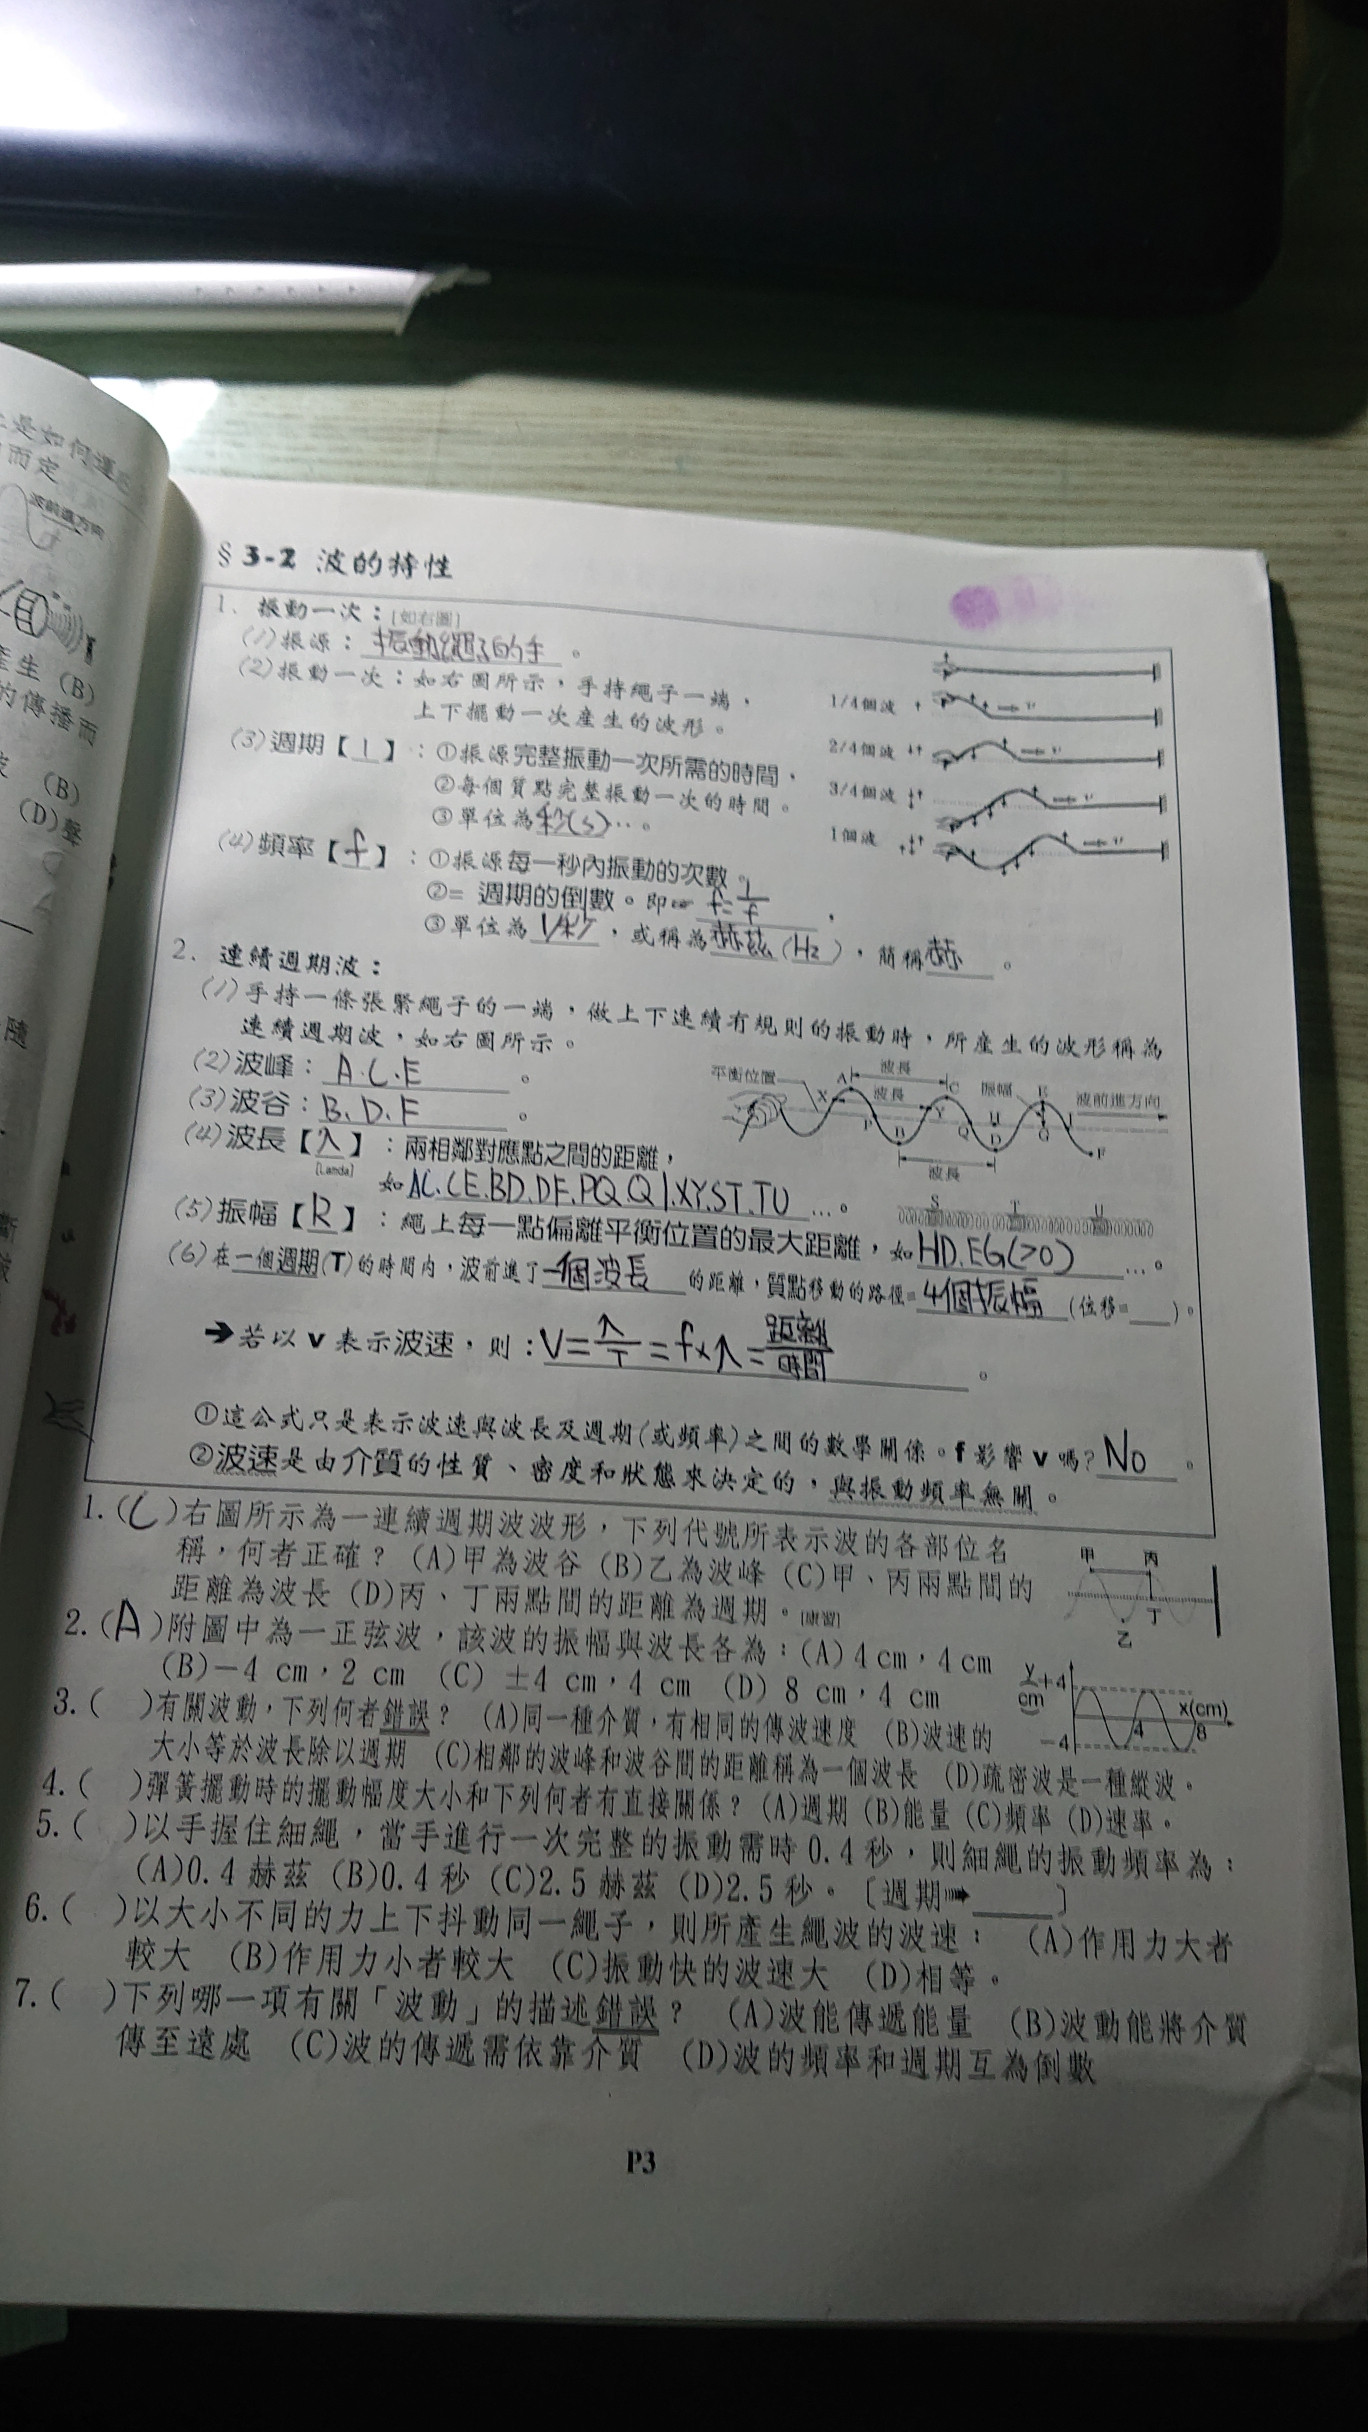 是如何運
而定
波前進方向
產生 (B)
的傳播而
(B)
(D)聲
隨
§ 3-2 波的特性
1. 振動一次：[如右圖]
(1)振源：振動繩子的手。
(2)振動一次：如右圖所示，手持繩子一端，
上下擺動一次產生的波形。
(3)週期【T】：①振源完整振動一次所需的時間，
②每個質點完整振動一次的時間。
③單位為秒(s)…。
(4)頻率【f】：①振源每一秒內振動的次數。
②= 週期的倒數。即 f=1/f，
③單位為 1/秒，或稱為赫茲(Hz)，簡稱赫。
1/4個波
v
2/4個波
v
3/4個波
v
1個波
v
2. 連續週期波：
(1)手持一條張緊繩子的一端，做上下連續有規則的振動時，所產生的波形稱為
連續週期波，如右圖所示。
(2)波峰：A.C.E。
(3)波谷：B.D.F。
(4)波長【λ】：兩相鄰對應點之間的距離，
[Lamda]
如AC.CE.BD.DF.PQ.QI.XY.ST.TU…。
平衡位置 X A 波長 波長 C 振幅 E 波前進方向
P B Y Q H D G I F
波長
S T U
(5)振幅【R】：繩上每一點偏離平衡位置的最大距離，如HD.EG(>0)…。
(6)在一個週期(T)的時間內，波前進了一個波長的距離，質點移動的路徑=4個振幅(位移=___)。
➔若以 v 表示波速，則：V=λ/T=f×λ=距離/時間。
①這公式只是表示波速與波長及週期(或頻率)之間的數學關係。f 影響 v 嗎?No。
②波速是由介質的性質、密度和狀態來決定的，與振動頻率無關。
1.(C)右圖所示為一連續週期波波形，下列代號所表示波的各部位名
稱，何者正確？ (A)甲為波谷 (B)乙為波峰 (C)甲、丙兩點間的
距離為波長 (D)丙、丁兩點間的距離為週期。[康習]
甲 丙
丁
乙
2.(A)附圖中為一正弦波，該波的振幅與波長各為：(A)4 cm，4 cm
(B)－4 cm，2 cm (C) ±4 cm，4 cm (D) 8 cm，4 cm
y +4
cm
x(cm)
-4 4 8
3.( )有關波動，下列何者錯誤？ (A)同一種介質，有相同的傳波速度 (B)波速的
大小等於波長除以週期 (C)相鄰的波峰和波谷間的距離稱為一個波長 (D)疏密波是一種縱波。
4.( )彈簧擺動時的擺動幅度大小和下列何者有直接關係？ (A)週期 (B)能量 (C)頻率 (D)速率。
5.( )以手握住細繩，當手進行一次完整的振動需時 0.4 秒，則細繩的振動頻率為：
(A)0.4 赫茲 (B)0.4 秒 (C)2.5 赫茲 (D)2.5 秒。〔週期➠____〕
6.( )以大小不同的力上下抖動同一繩子，則所產生繩波的波速： (A)作用力大者
較大 (B)作用力小者較大 (C)振動快的波速大 (D)相等。
7.( )下列哪一項有關「波動」的描述錯誤？ (A)波能傳遞能量 (B)波動能將介質
傳至遠處 (C)波的傳遞需依靠介質 (D)波的頻率和週期互為倒數
P3